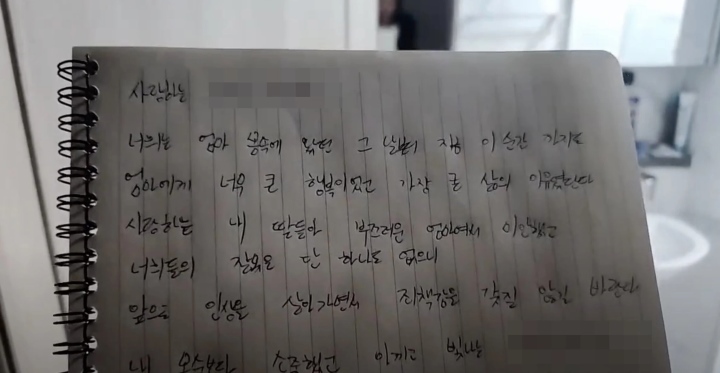 사랑하는
너희는 엄마 품속에 왔던 그 날부터 지금 이 순간 까지도
엄마에게 너무 큰 행복이었고 가장 큰 삶의 이유였단다
사랑하는 내 딸들아 부끄러운 엄마여서 미안했고
너희들의 잘못은 단 하나도 없으니
앞으로 인생을 살아가면서 죄책감을 갖질 않길 바란다
내 목숨보다 소중했고 아끼고 빛나는